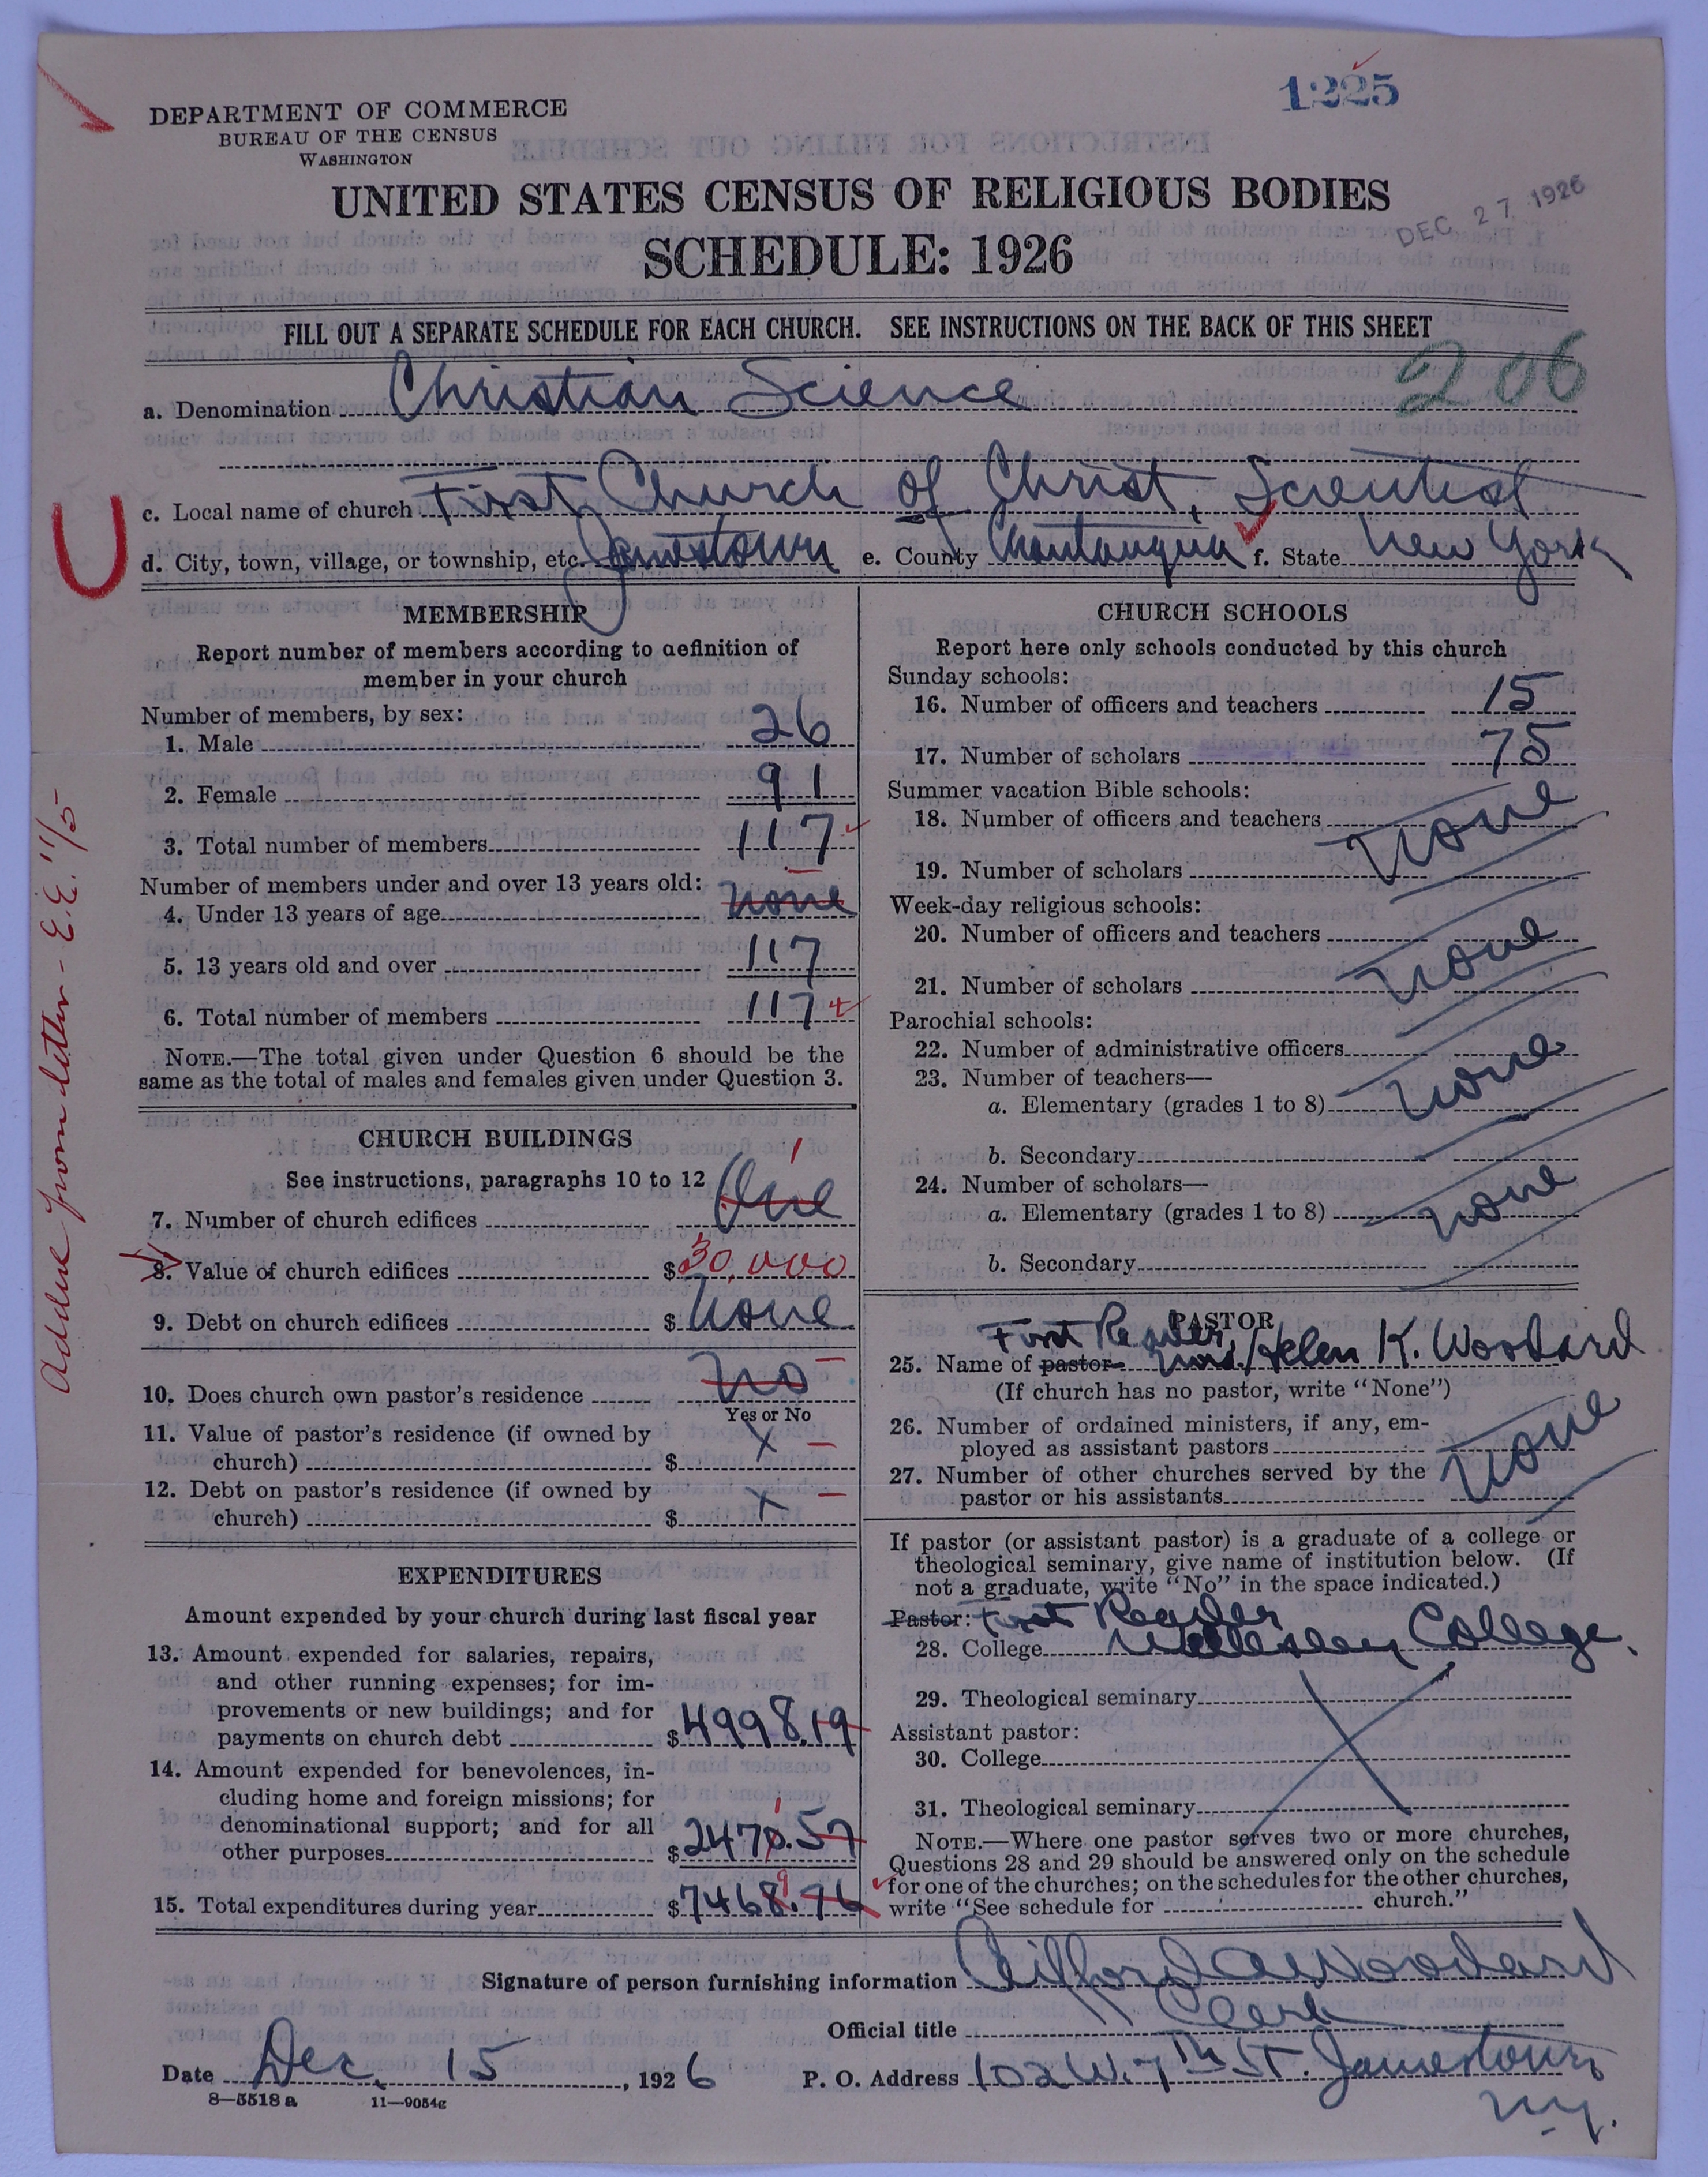 1225
DEPARTMENT OF COMMERCE
BUREAU OF THE CENSUS
WASHINGTON
UNITED STATES CENSUS OF RELIGIOUS BODIES
DEC 27 1926
SCHEDULE: 1926
FILL OUT A SEPARATE SCHEDULE FOR EACH CHURCH. SEE INSTRUCTIONS ON THE BACK OF THIS SHEET
206
a. Denomination Christian Science
c. Local name of church First Church of Christ, Scientist
d. City, town, village, or township, etc. Jamestown e. County Chautauqua f. State New York
MEMBERSHIP
Report number of members according to definition of
member in your church
Number of members, by sex:
1. Male 26
2. Female 91
3. Total number of members 117
Number of members under and over 13 years old:
4. Under 13 years of age none
5. 13 years old and over 117
6. Total number of members 117
NOTE.—The total given under Question 6 should be the
same as the total of males and females given under Question 3.
CHURCH BUILDINGS
See instructions, paragraphs 10 to 12
7. Number of church edifices One 1
8. Value of church edifices $ 30,000
9. Debt on church edifices $ None
10. Does church own pastor's residence No
Yes or No
11. Value of pastor's residence (if owned by
church) $ X
12. Debt on pastor's residence (if owned by
church) $ X
EXPENDITURES
Amount expended by your church during last fiscal year
13. Amount expended for salaries, repairs,
and other running expenses; for im-
provements or new buildings; and for
payments on church debt $ 4998.19
14. Amount expended for benevolences, in-
cluding home and foreign missions; for
denominational support; and for all
other purposes $ 2470.57
1
15. Total expenditures during year $ 7468.76
9
CHURCH SCHOOLS
Report here only schools conducted by this church
Sunday schools:
16. Number of officers and teachers 15
17. Number of scholars 75
Summer vacation Bible schools:
18. Number of officers and teachers
19. Number of scholars None
Week-day religious schools:
20. Number of officers and teachers
21. Number of scholars None
Parochial schools:
22. Number of administrative officers
23. Number of teachers—
a. Elementary (grades 1 to 8) None
b. Secondary
24. Number of scholars—
a. Elementary (grades 1 to 8) None
b. Secondary
PASTOR
First Reader,
25. Name of pastor Mrs. Helen K. Woodard
(If church has no pastor, write "None")
26. Number of ordained ministers, if any, em-
ployed as assistant pastors
27. Number of other churches served by the
pastor or his assistants None
If pastor (or assistant pastor) is a graduate of a college or
theological seminary, give name of institution below. (If
not a graduate, write "No" in the space indicated.)
Pastor: First Reader
28. College Wellesley College.
29. Theological seminary
Assistant pastor:
30. College
31. Theological seminary
NOTE.—Where one pastor serves two or more churches,
Questions 28 and 29 should be answered only on the schedule
for one of the churches; on the schedules for the other churches,
write "See schedule for church."
Signature of person furnishing information Gifford A Woodard
Official title Clerk
Date Dec. 15, 1926 P. O. Address 102 W. 7th St. Jamestown
N.Y.
8—5518 a 11—9054g
Added from letter - E.E. 11/5